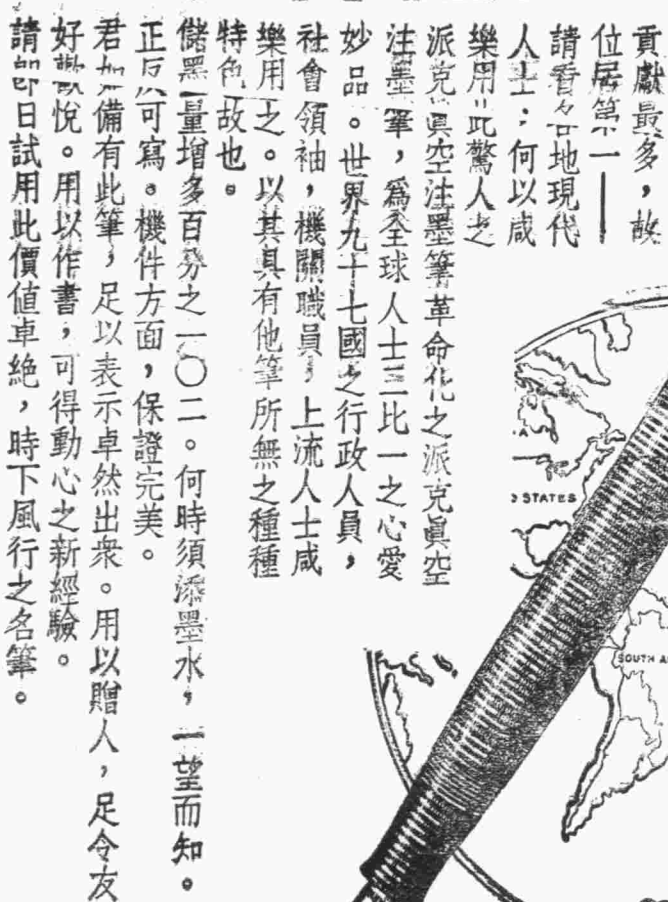 貢獻最多，故
位居第一——
請看各地現代
人士：何以咸
樂用此驚人之
派克眞空注墨筆革命化之派克眞空
注墨筆，爲全球人士三比一之心愛
妙品。世界九十七國之行政人員，
社會領袖，機關職員，上流人士咸
樂用之。以其具有他筆所無之種種
特色故也。
儲墨量增多百分之一〇二。何時須添墨水，一望而知。
正反可寫。機件方面，保證完美。
君如備有此筆，足以表示卓然出衆。用以贈人，足令友
好歡悅。用以作書，可得動心之新經驗。
請即日試用此價値卓絶，時下風行之名筆。
STATES
SOUTH A